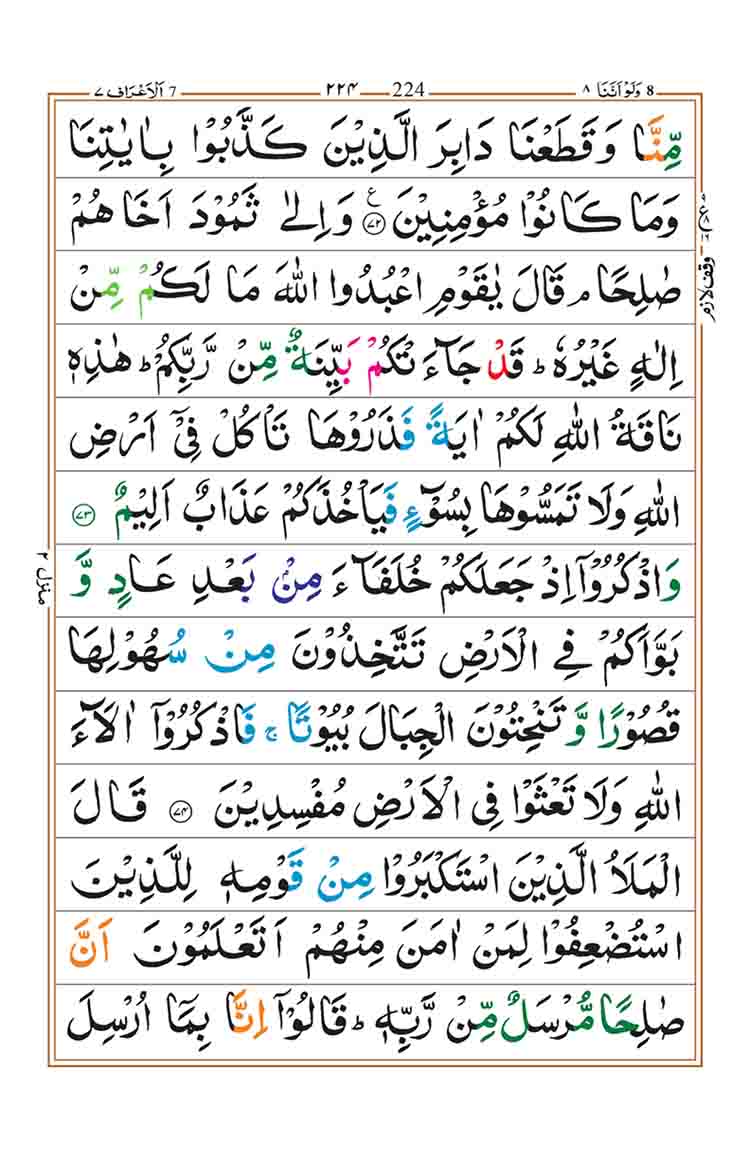 7 اَلْاَعْرَاف ۷ ۲۲۴ 224 8 وَلَوْ اَنَّنَا ۸
مِّنَّا وَقَطَعْنَا دَابِرَ الَّذِيْنَ كَذَّبُوْا بِاٰيٰتِنَا
وَمَا كَانُوْا مُؤْمِنِيْنَ ﴿۷۲﴾ ع وَاِلٰى ثَمُوْدَ اَخَاهُمْ
صٰلِحًا ۘ قَالَ يٰقَوْمِ اعْبُدُوا اللّٰهَ مَا لَكُمْ مِّنْ
اِلٰهٍ غَيْرُهٗ ؕ قَدْ جَآءَتْكُمْ بَيِّنَةٌ مِّنْ رَّبِّكُمْ ؕ هٰذِهٖ
نَاقَةُ اللّٰهِ لَكُمْ اٰيَةً فَذَرُوْهَا تَاْكُلْ فِيْٓ اَرْضِ
اللّٰهِ وَلَا تَمَسُّوْهَا بِسُوْٓءٍ فَيَاْخُذَكُمْ عَذَابٌ اَلِيْمٌ ﴿۷۳﴾
وَاذْكُرُوْٓا اِذْ جَعَلَكُمْ خُلَفَآءَ مِنْۢ بَعْدِ عَادٍ وَّ
بَوَّاَكُمْ فِي الْاَرْضِ تَتَّخِذُوْنَ مِنْ سُهُوْلِهَا
قُصُوْرًا وَّتَنْحِتُوْنَ الْجِبَالَ بُيُوْتًا ۚ فَاذْكُرُوْٓا اٰلَآءَ
اللّٰهِ وَلَا تَعْثَوْا فِى الْاَرْضِ مُفْسِدِيْنَ ﴿۷۴﴾ قَالَ
الْمَلَاُ الَّذِيْنَ اسْتَكْبَرُوْا مِنْ قَوْمِهٖ لِلَّذِيْنَ
اسْتُضْعِفُوْا لِمَنْ اٰمَنَ مِنْهُمْ اَتَعْلَمُوْنَ اَنَّ
صٰلِحًا مُّرْسَلٌ مِّنْ رَّبِّهٖ ؕ قَالُوْٓا اِنَّا بِمَآ اُرْسِلَ
وقف لازم
منزل ۲